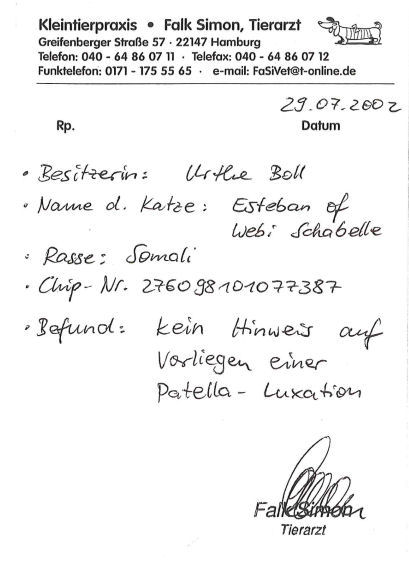 Kleintierpraxis • Falk Simon, Tierarzt
Greifenberger Straße 57 · 22147 Hamburg
Telefon: 040 - 64 86 07 11 · Telefax: 040 - 64 86 07 12
Funktelefon: 0171 - 175 55 65 · e-mail: FaSiVet@t-online.de
29.07.2002
Rp. Datum
• Besitzerin: Urthe Boll
• Name d. Katze: Esteban of
Webi Schabelle
• Rasse: Somali
• Chip-Nr. 276098101077387
• Befund: kein Hinweis auf
Vorliegen einer
Patella-Luxation
Falk Simon
Tierarzt